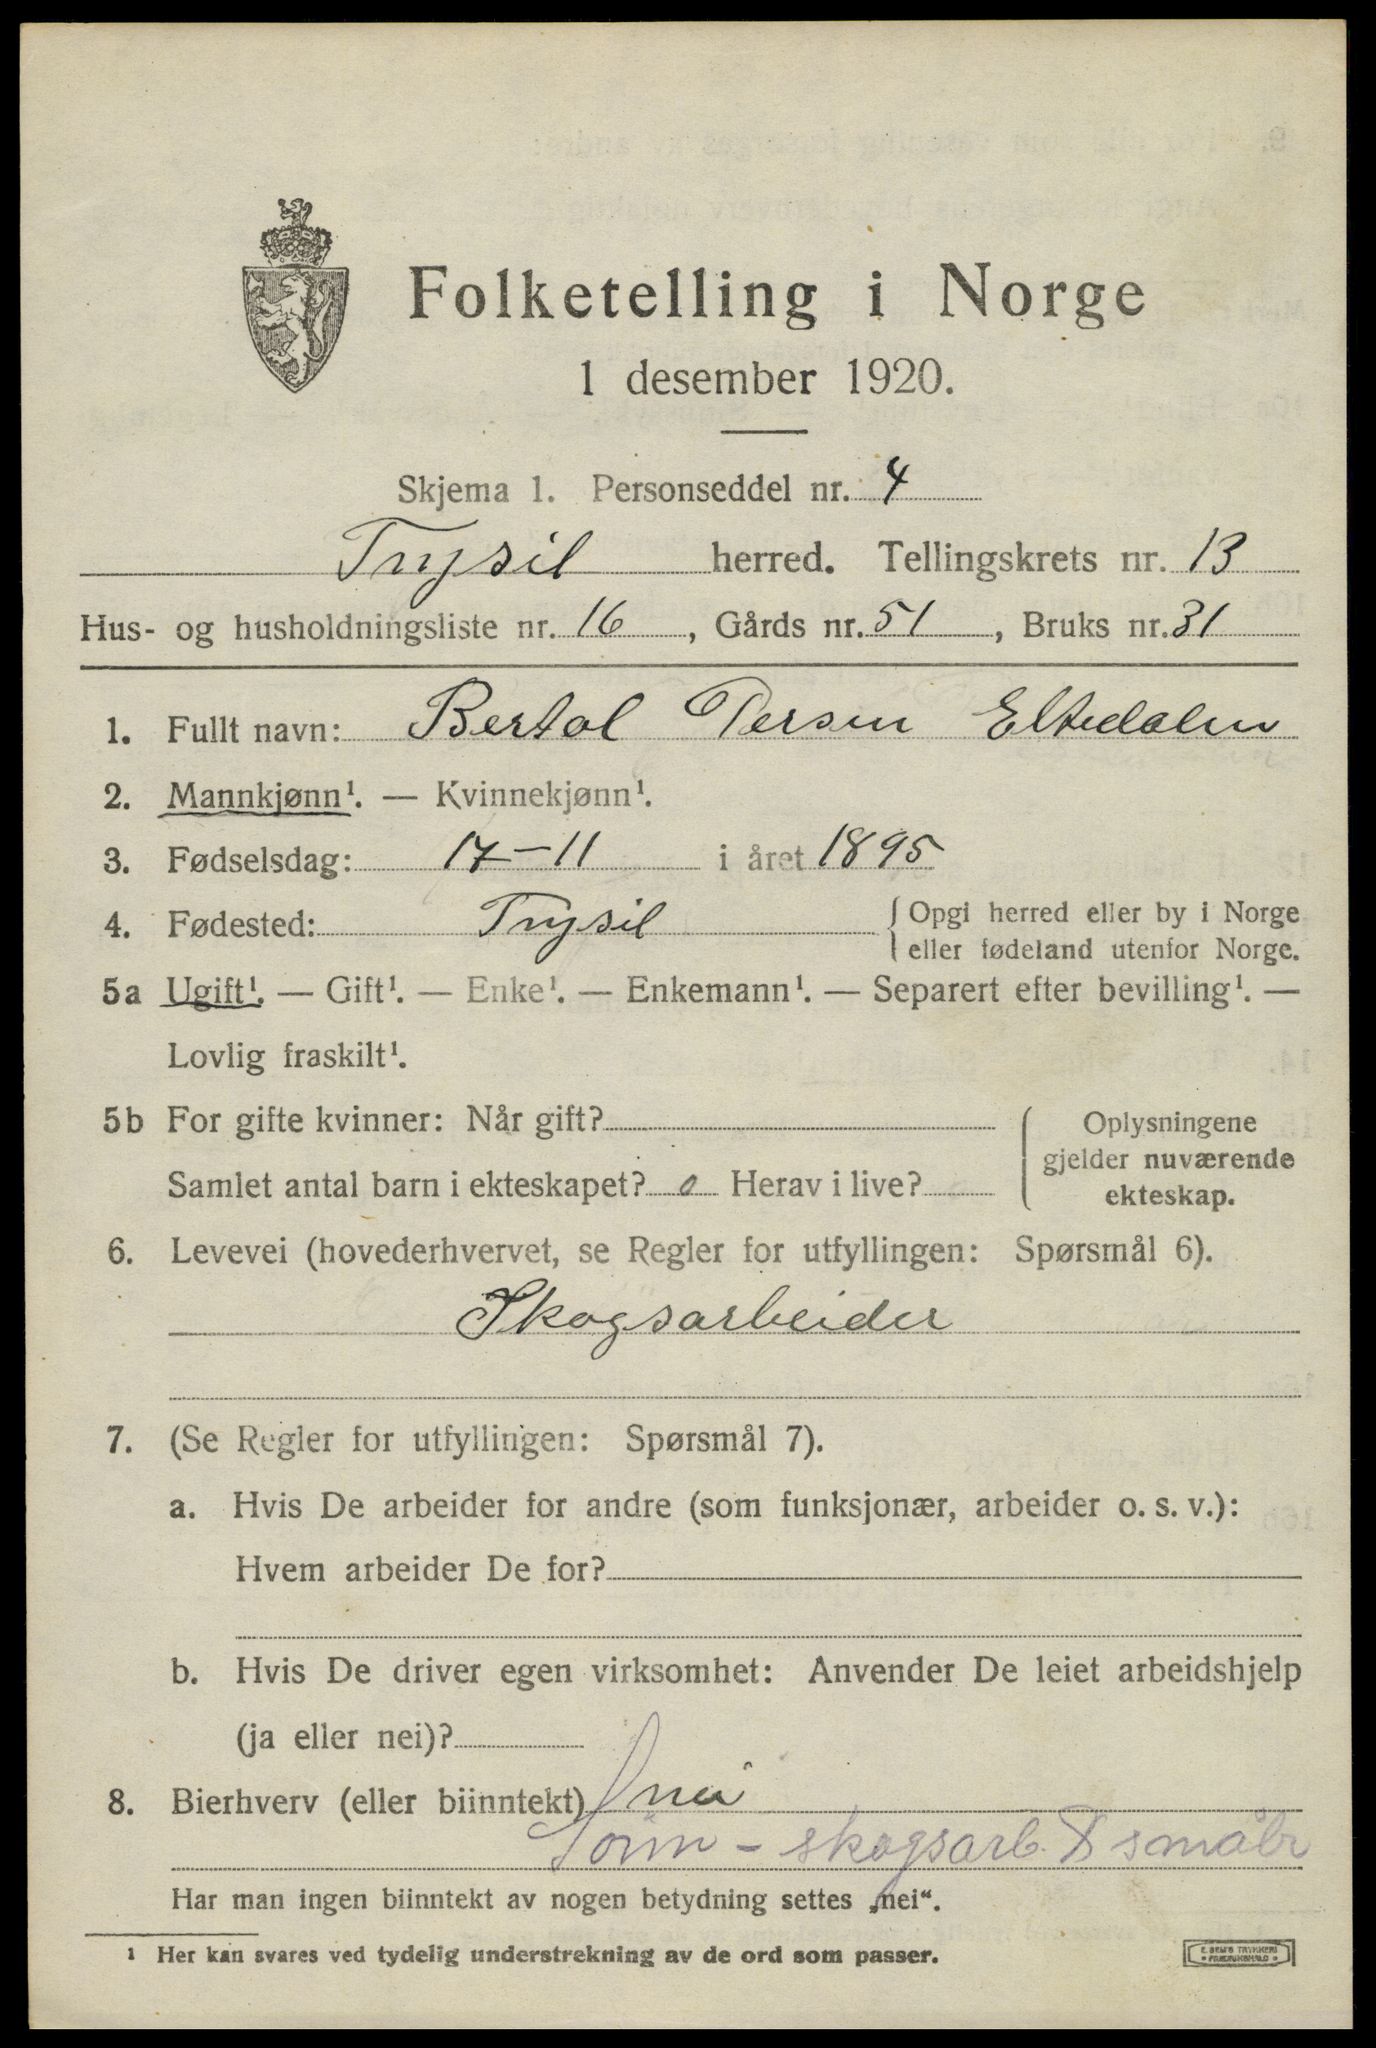 Folketelling i Norge
1 desember 1920.
Skjema 1. Personseddel nr. 4
Trysil herred. Tellingskrets nr. 13
Hus- og husholdningsliste nr. 16, Gårds nr. 51, Bruks nr. 31
1. Fullt navn: Bertol Persen Eltedalen
2. Mannkjønn¹. — Kvinnekjønn¹.
3. Fødselsdag: 17-11 i året 1895
4. Fødested: Trysil { Opgi herred eller by i Norge
eller fødeland utenfor Norge.
5a Ugift¹. — Gift¹. — Enke¹. — Enkemann¹. — Separert efter bevilling¹. —
Lovlig fraskilt¹.
5b For gifte kvinner: Når gift? { Oplysningene
gjelder nuværende
Samlet antal barn i ekteskapet? 0 Herav i live?
ekteskap.
6. Levevei (hovederhvervet, se Regler for utfyllingen: Spørsmål 6).
Skogsarbeider
7. (Se Regler for utfyllingen: Spørsmål 7).
a. Hvis De arbeider for andre (som funksjonær, arbeider o. s. v.):
Hvem arbeider De for?
b. Hvis De driver egen virksomhet: Anvender De leiet arbeidshjelp
(ja eller nei)?
8. Bierhverv (eller biinntekt) nei
- skogsarb. småbr
Har man ingen biinntekt av nogen betydning settes „nei“.
¹ Her kan svares ved tydelig understrekning av de ord som passer.
E. SEM'S TRYKKERI
FREDRIKSHALD